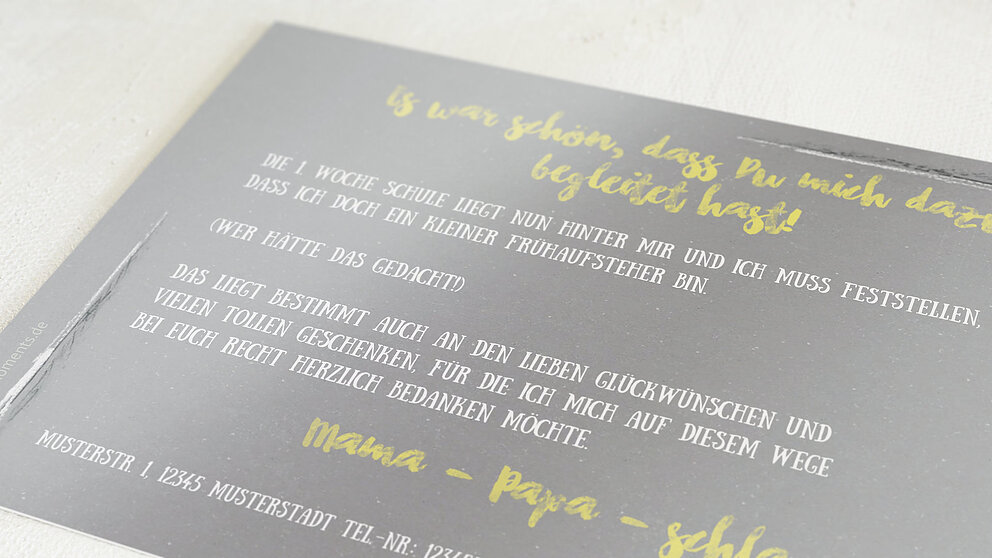 Es war schön, dass Du mich dazu
begleitet hast!
DIE 1. WOCHE SCHULE LIEGT NUN HINTER MIR UND ICH MUSS FESTSTELLEN,
DASS ICH DOCH EIN KLEINER FRÜHAUFSTEHER BIN.
(WER HÄTTE DAS GEDACHT!)
DAS LIEGT BESTIMMT AUCH AN DEN LIEBEN GLÜCKWÜNSCHEN UND
VIELEN TOLLEN GESCHENKEN, FÜR DIE ICH MICH AUF DIESEM WEGE
BEI EUCH RECHT HERZLICH BEDANKEN MÖCHTE.
Mama – Papa –
MUSTERSTR. 1, 12345 MUSTERSTADT TEL.-NR.: